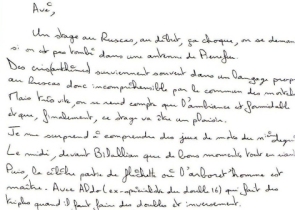 Avé,
Un stage au Ruscas, au début, ça choque, on se deman
si on est pas tombé dans une antenne de
Des surviennent souvent dans un langage prop
au Ruscas donc incompréhensible par le commun des mortels
Mais très vite, on se rend compte que l'ambiance est formidable
et que, finalement, ce stage va être un plaisir.
Je me surprend à comprendre des jeux de mots du
Le midi, devant que de bons moments tout en
Puis, la célèbre partie de où l'arboret Thomas est
maître. Avec Aldo (ex-spécialiste du double 16) qui fait des
triples quand il faut faire des doubles et inversement.